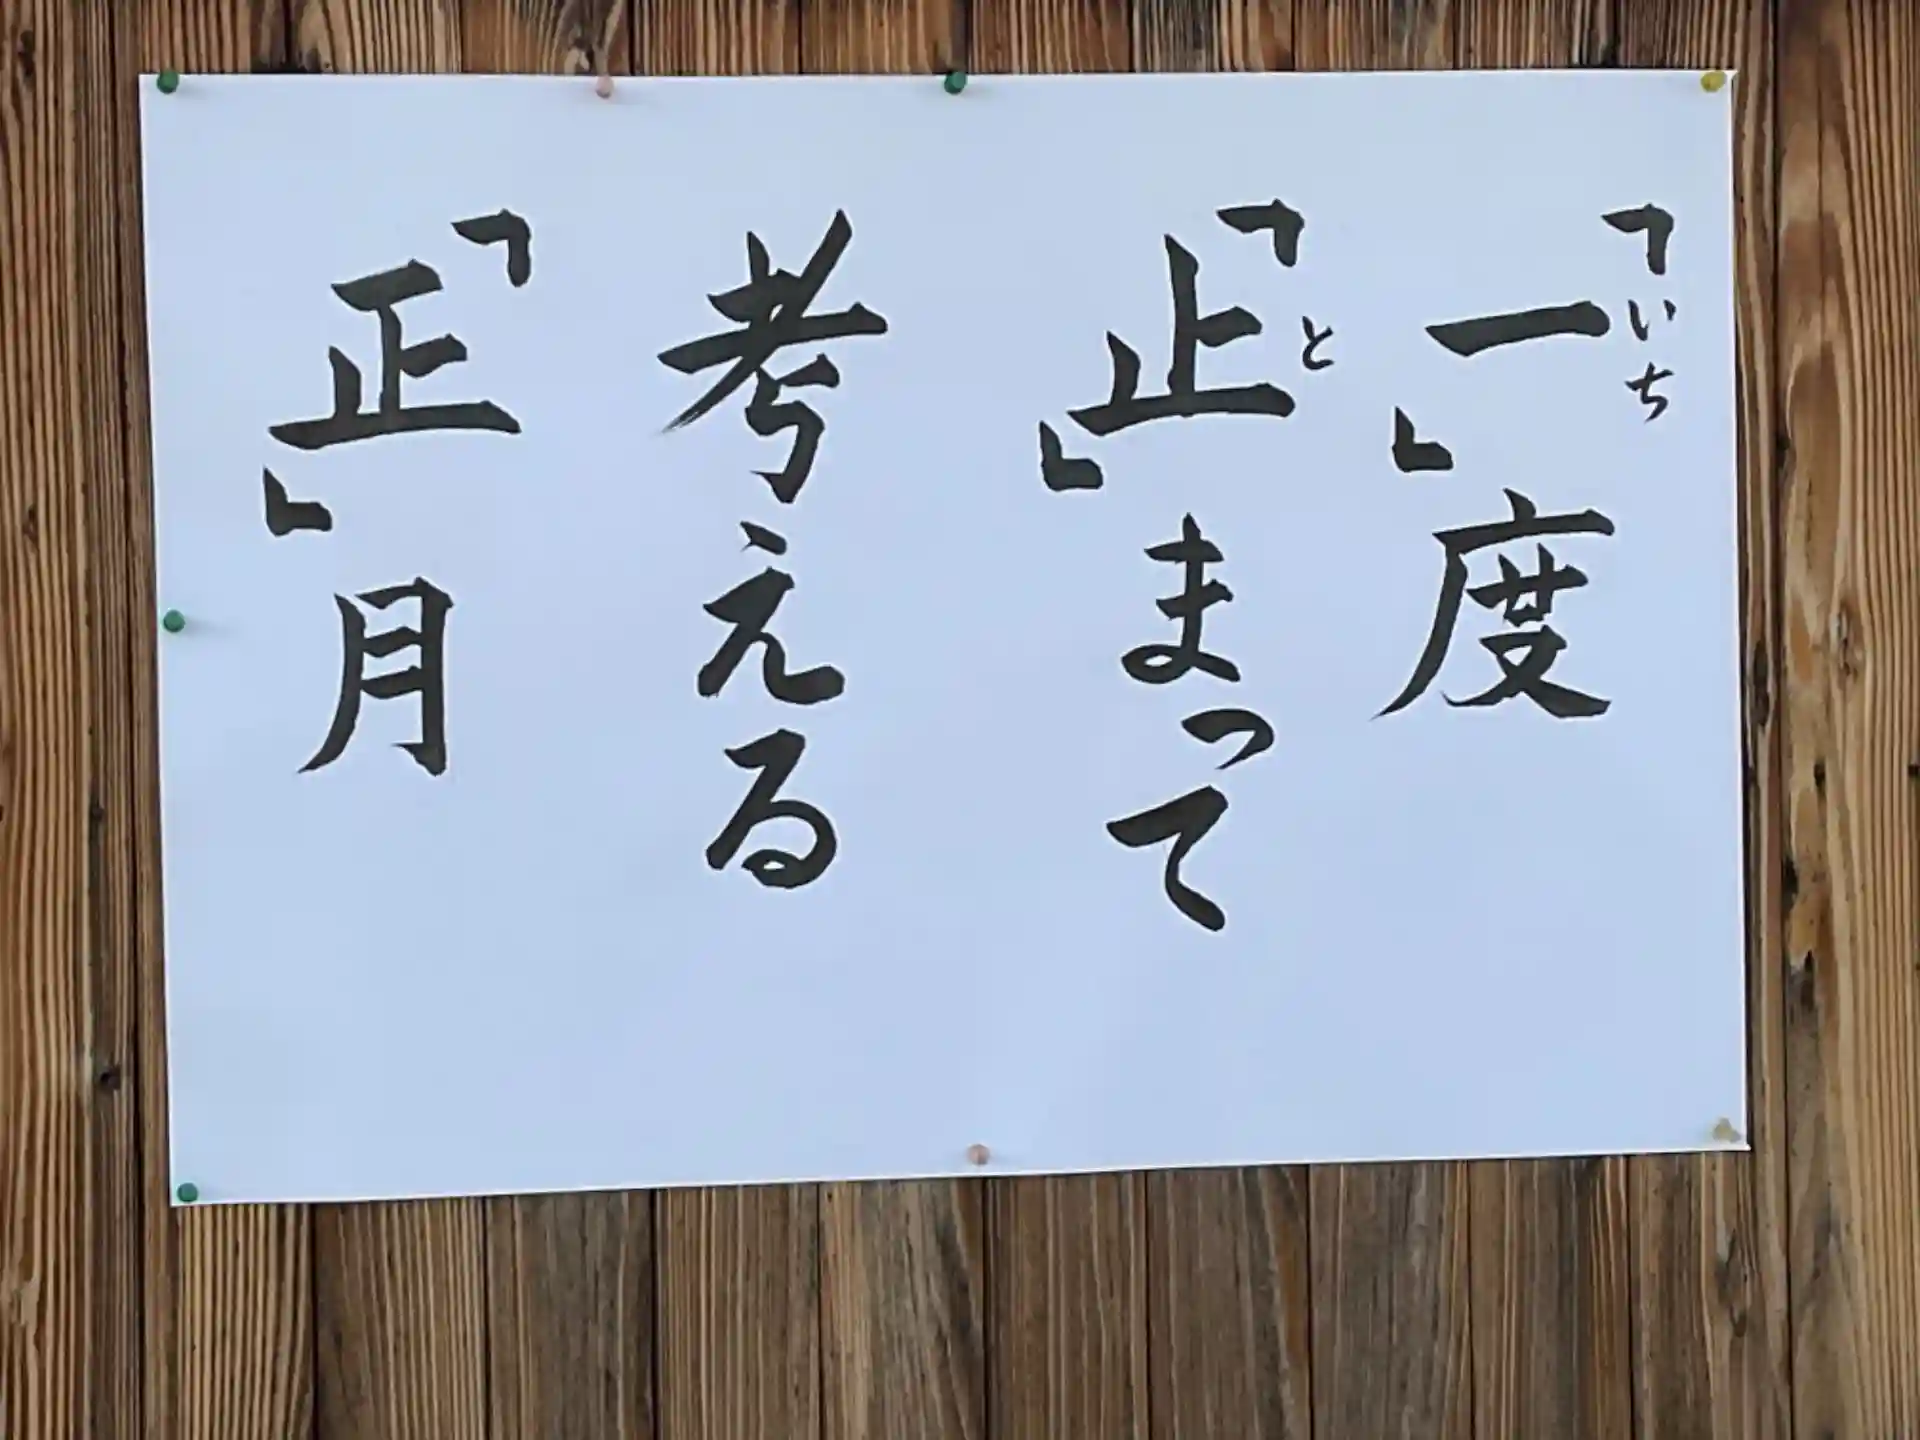 「一」度
いち
「止」まって
と
考える
「正」月